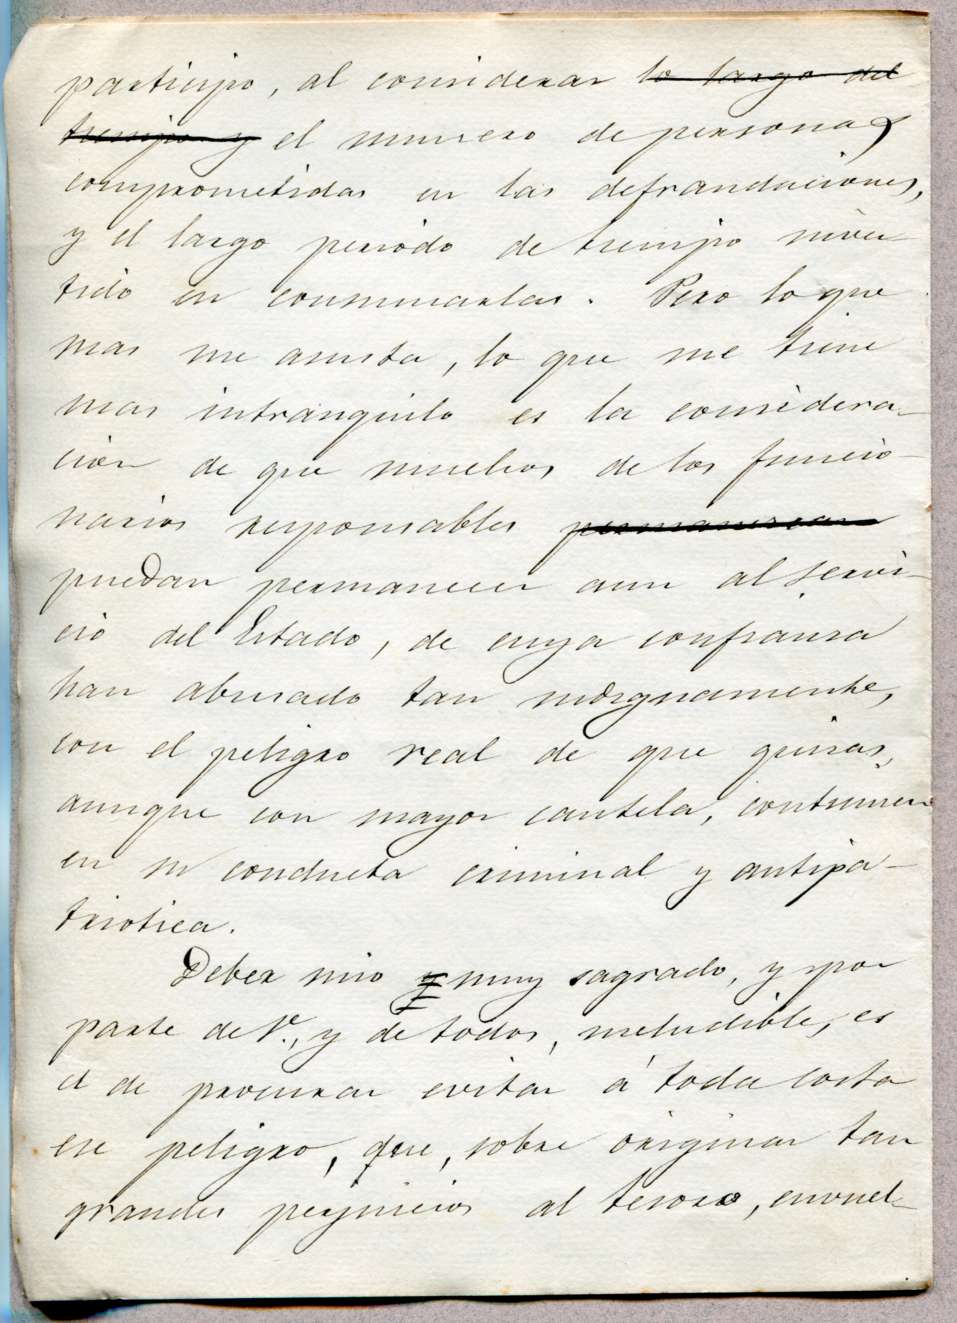 participo, al considerar lo largo del
tiempo y el numero de personas
comprometidas en las defraudaciones,
y el largo periodo de tiempo inver-
tido en consumarlas. Pero lo que
mas me asusta, lo que me tiene
mas intranquilo es la considera-
ción de que muchos de los funcio-
narios responsables permanezcan
puedan permanecer aun al servi-
cio del Estado, de cuya confianza
han abusado tan indignamente,
con el peligro real de que quizas,
aunque con mayor cautela, continuen
en su conducta criminal y antipa-
triotica.
Deber mio y muy sagrado, y por
parte de V., y de todos, ineludible, es
el de procurar evitar á toda costa
ese peligro, que, sobre originar tan
grandes perjuicios al tesoro, envuel-